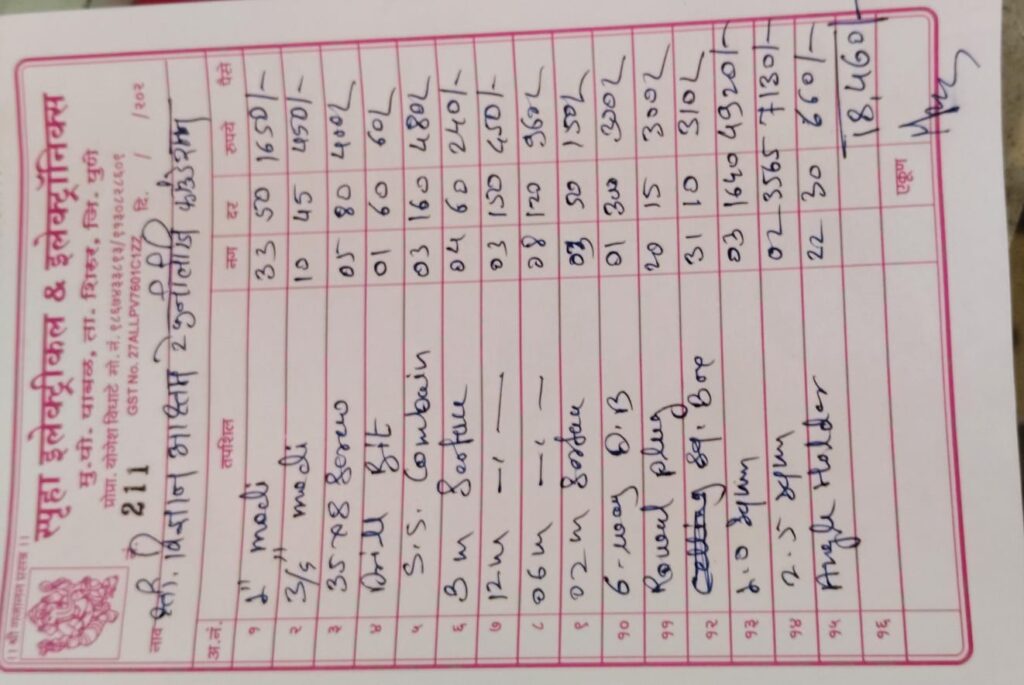 ।। श्री गजानन प्रसन्न ।।
स्पृहा इलेक्ट्रीकल & इलेक्ट्रॉनिक्स
मु.पो. पाबळ, ता. शिरूर, जि. पुणे
प्रोप्रा. योगेश विघाटे मो. नं.
GST No. 27ALLPV7601C1ZZ
नं. 211 दि. / /२०२
नाव श्री. विज्ञान आश्रम
अ.नं. तपशिल नग दर रुपये पैसे
१ 1" modi 33 50 1650/-
२ 3/4" modi 10 45 450/-
३ 35x8 Screw 05 80 400/-
४ Drill Bit 01 60 60/-
५ S.S. Combain 03 160 480/-
६ 3 m Surface 04 60 240/-
७ 12m —"— 03 150 450/-
८ 06m —"— 08 120 960/-
९ 02 m Surface 03 50 150/-
१० 6-way D.B 01 300 300/-
११ Rowal plug 20 15 300/-
१२ Sq. Box 31 10 310/-
१३ 1.0 sqmm 03 1640 4920/-
१४ 2.5 sqmm 02 3565 7130/-
१५ Angle Holder 22 30 660/-
१६ 18,460/-
एकूण